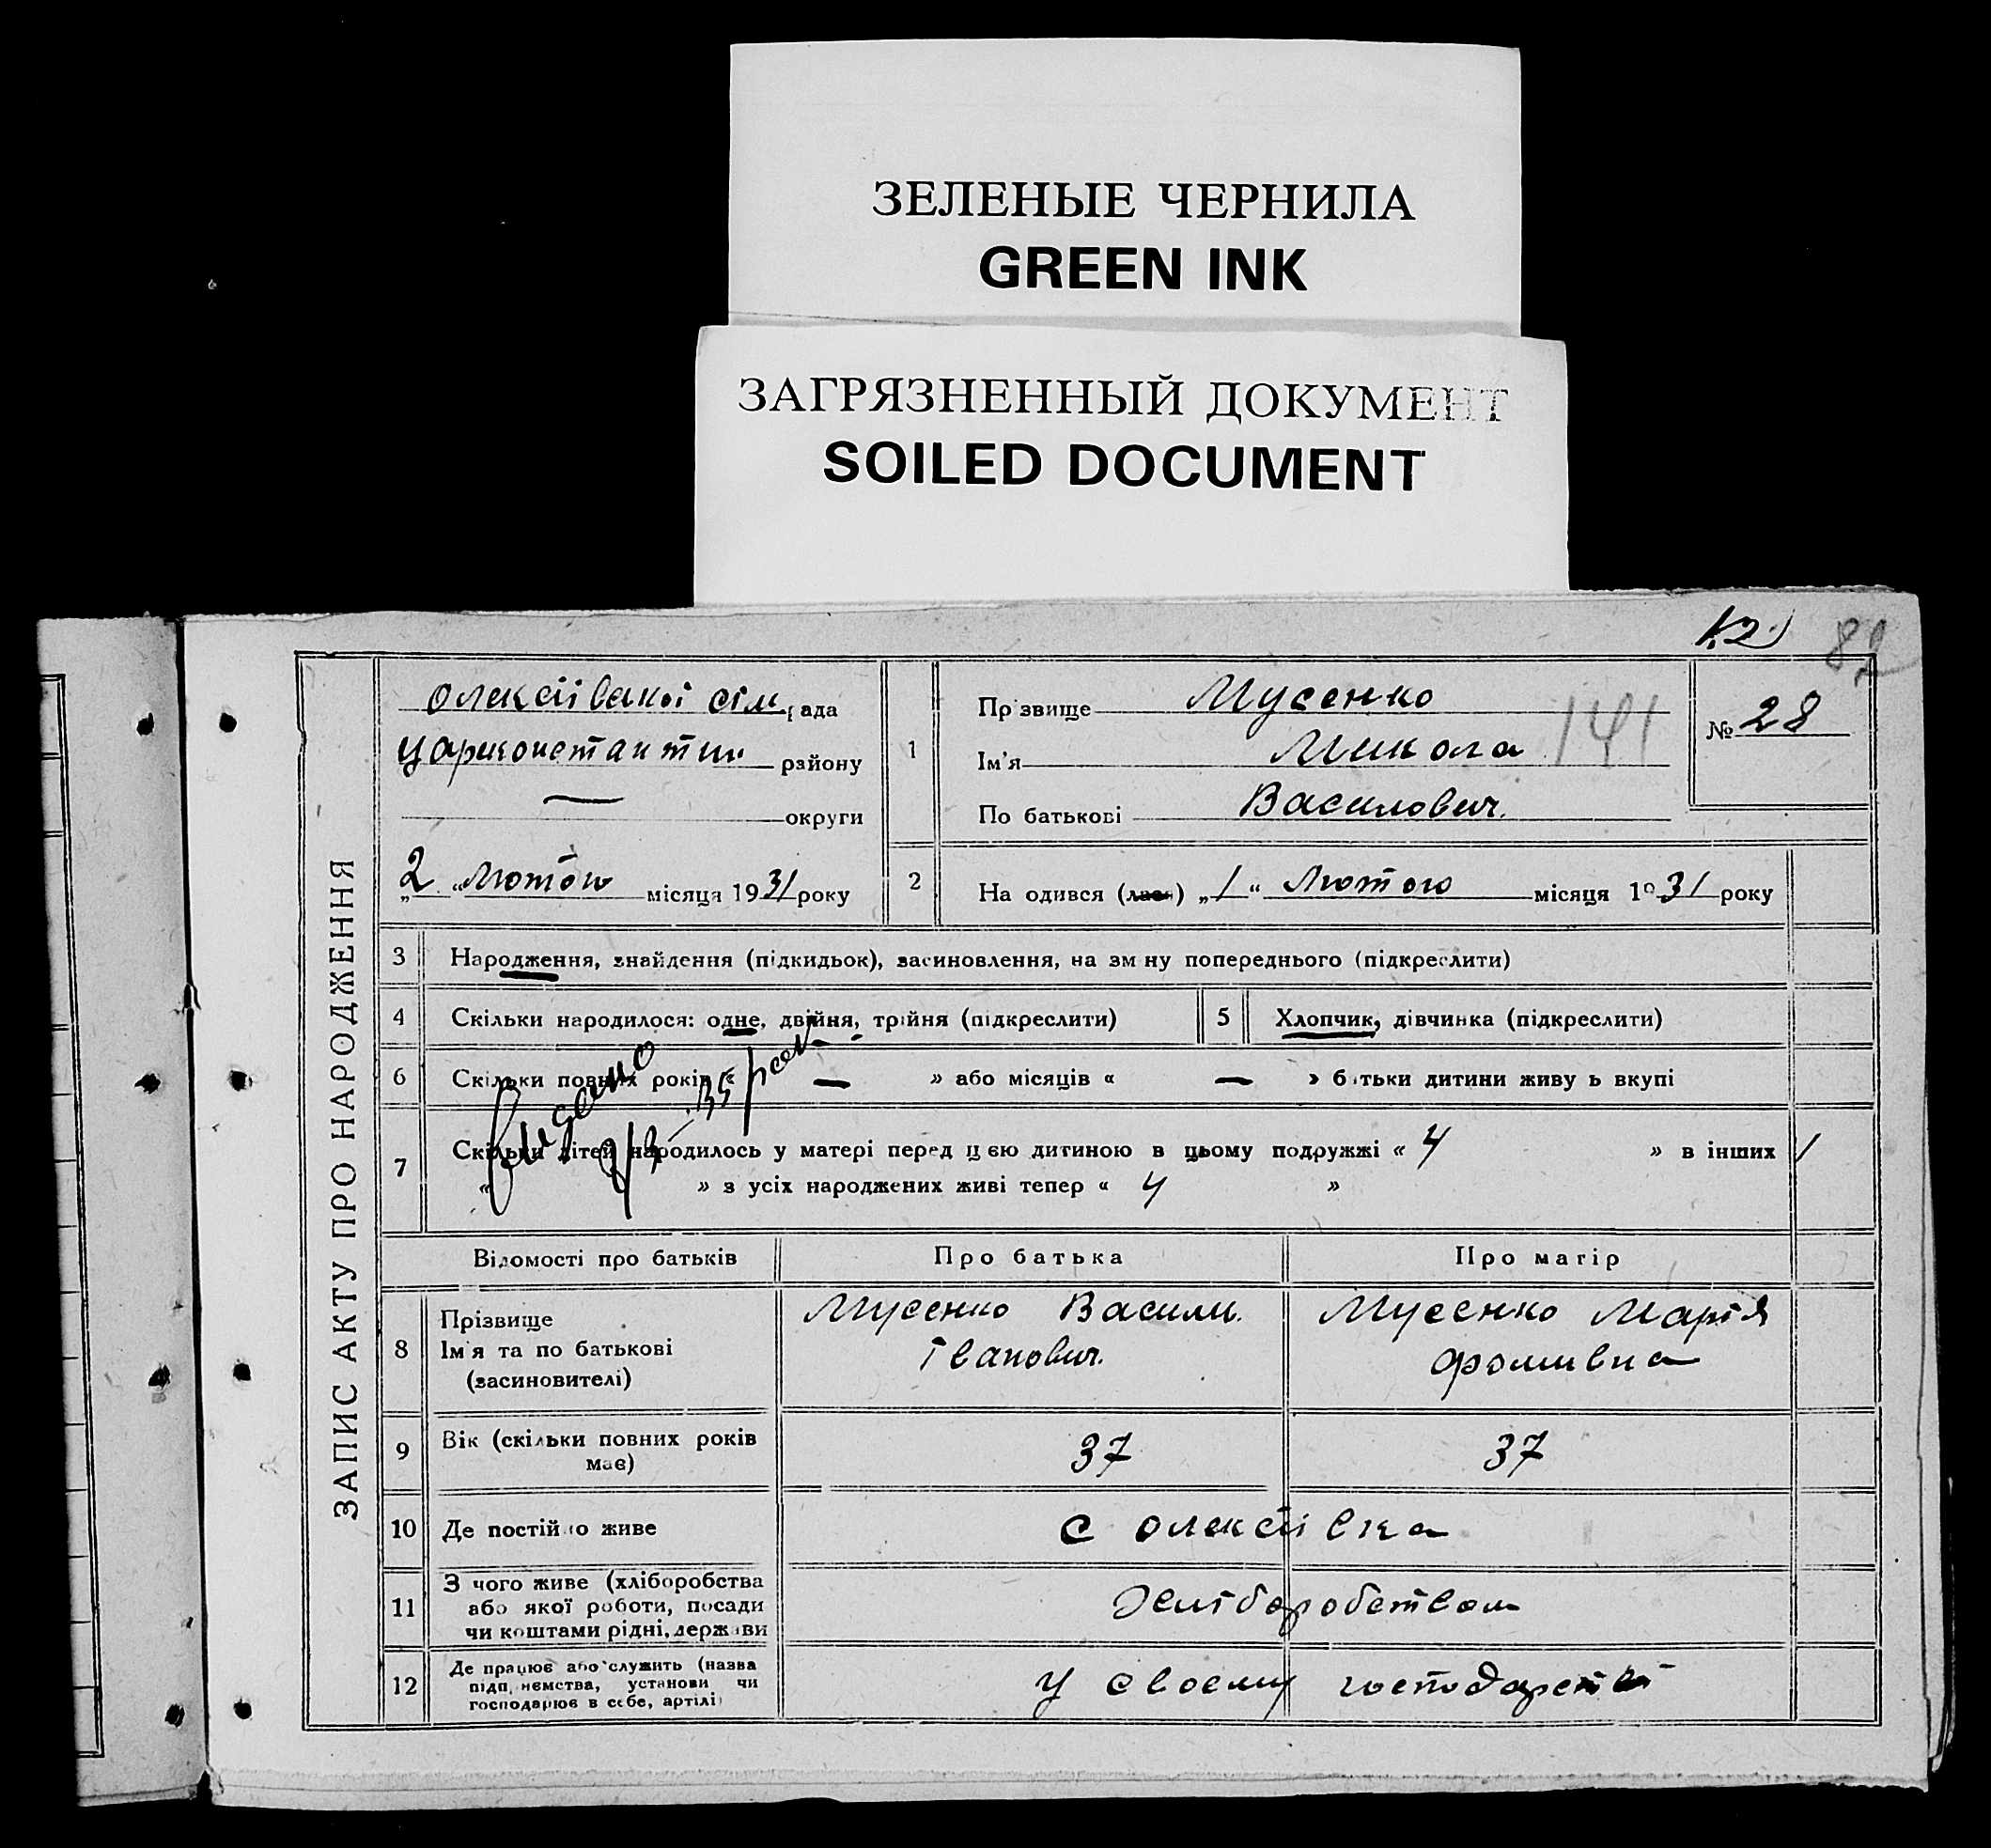 ЗЕЛЕНЫЕ ЧЕРНИЛА
GREEN INK
ЗАГРЯЗНЕННЫЙ ДОКУМЕНТ
SOILED DOCUMENT
82
ЗАПИС АКТУ ПРО НАРОДЖЕННЯ
Олексіївської сіл рада
Царшконстантин району
— округи
„2“ Лютого місяця 1931 року
1
Прізвище Мусенко
Ім'я Микола
По батькові Василович.
141
№ 28
2
На одився (лася) „1“ Лютого місяця 1931 року
3 Народження, знайдення (підкидьок), засиновлення, на зм ну попереднього (підкреслити)
4 Скільки народилося: одне, двійня, трійня (підкреслити)
5 Хлопчик, дівчинка (підкреслити)
6 Скільки повних років « — » або місяців « — » б тьки дитини живу ь вкупі
Видано
7 Скільки дітей народилось у матері перед цею дитиною в цьому подружжі « 4 » в інших 1
« » з усіх народжених живі тепер « 4 »
Відомості про батьків Про батька Про матір
8 Прізвище
Ім'я та по батькові
(засиновителі)
Мусенко Васили.
Іванович.
Мусенко Марія
Фомивна
9 Вік (скільки повних років
має)
37 37
10 Де постійно живе с Олексіївка
11 З чого живе (хліборобства
або якої роботи, посади
чи коштами рідні, держави
Хліборобством
12 Де працює або служить (назва
підп, немства, установи чи
господарює в себе, артілі)
У своему господарстві